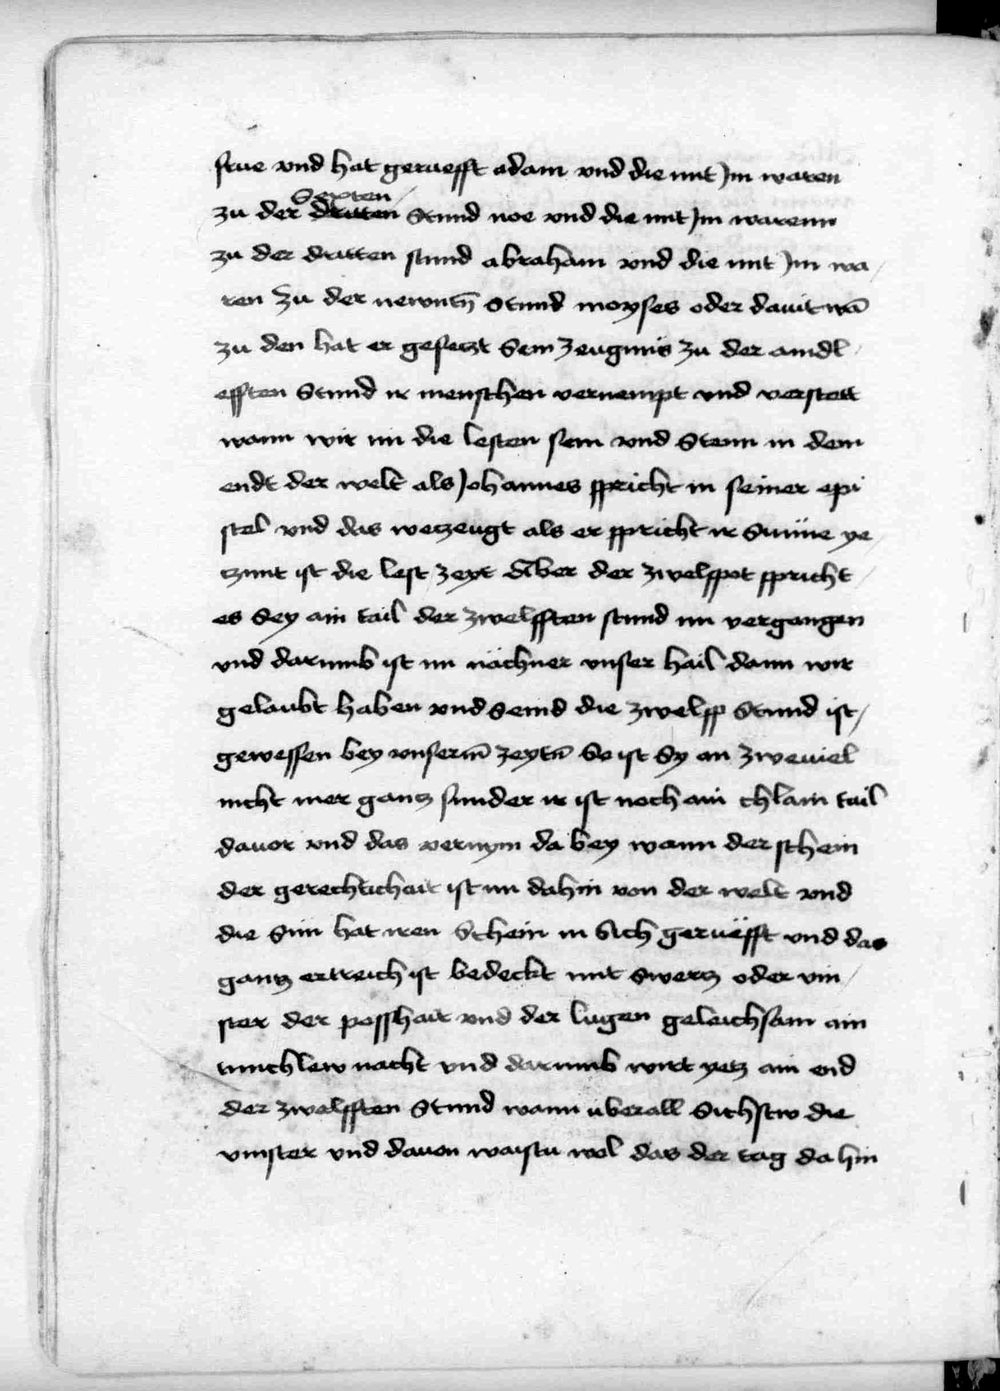 frue vnd hat geruefft adam vnd die mit Jm waren
Sexten
zu der dritten Stund noe vnd die mit Jm warenn
zu der dritten stund abraham vnd die mit Jm wa/
ren Zu der newntn̄ Stund moyses oder dauit wā
zu den hat er gesetzt Sein zeugnus zu der aindl/
efften Stund ir menschen vernempt vnd verstett
wann wir nu die lesten sein vnd Steun in dem
endt der welt als Johannes spricht in seiner epi
stel vnd das wetzeugt als er spricht ir Sunne ye/
tzunt ist die lest zeyt Aber der zwelfpot spricht/
es Sey ain tail der zwelfften stund nu vergangen
vnd darumb ist nu nächner vnser hail dann wir
gelaubt haben vnd Seind die zwelff Stund ist/
gewessen bey vnserm̄ zeytn̄ So ist Sy an zweuiel
nicht mer gantz sunder ir ist noch ain chlain tail
dauor vnd das vernym da bey wann der schein
der gerechtichait ist nu dahin von der welt vnd
die Sun hat iren Schein in Sich gerüefft vnd das
gantz ertreich ist bedeckt mit Swertz oder vin/
ster der posshait vnd der lugen geleichsam ain
tunchlew nacht vnd darumb wirt yetz ain end
der zwelfften Stund wann überall Sichstw die
vinster vnd dauon waistu wol das der tag da hin